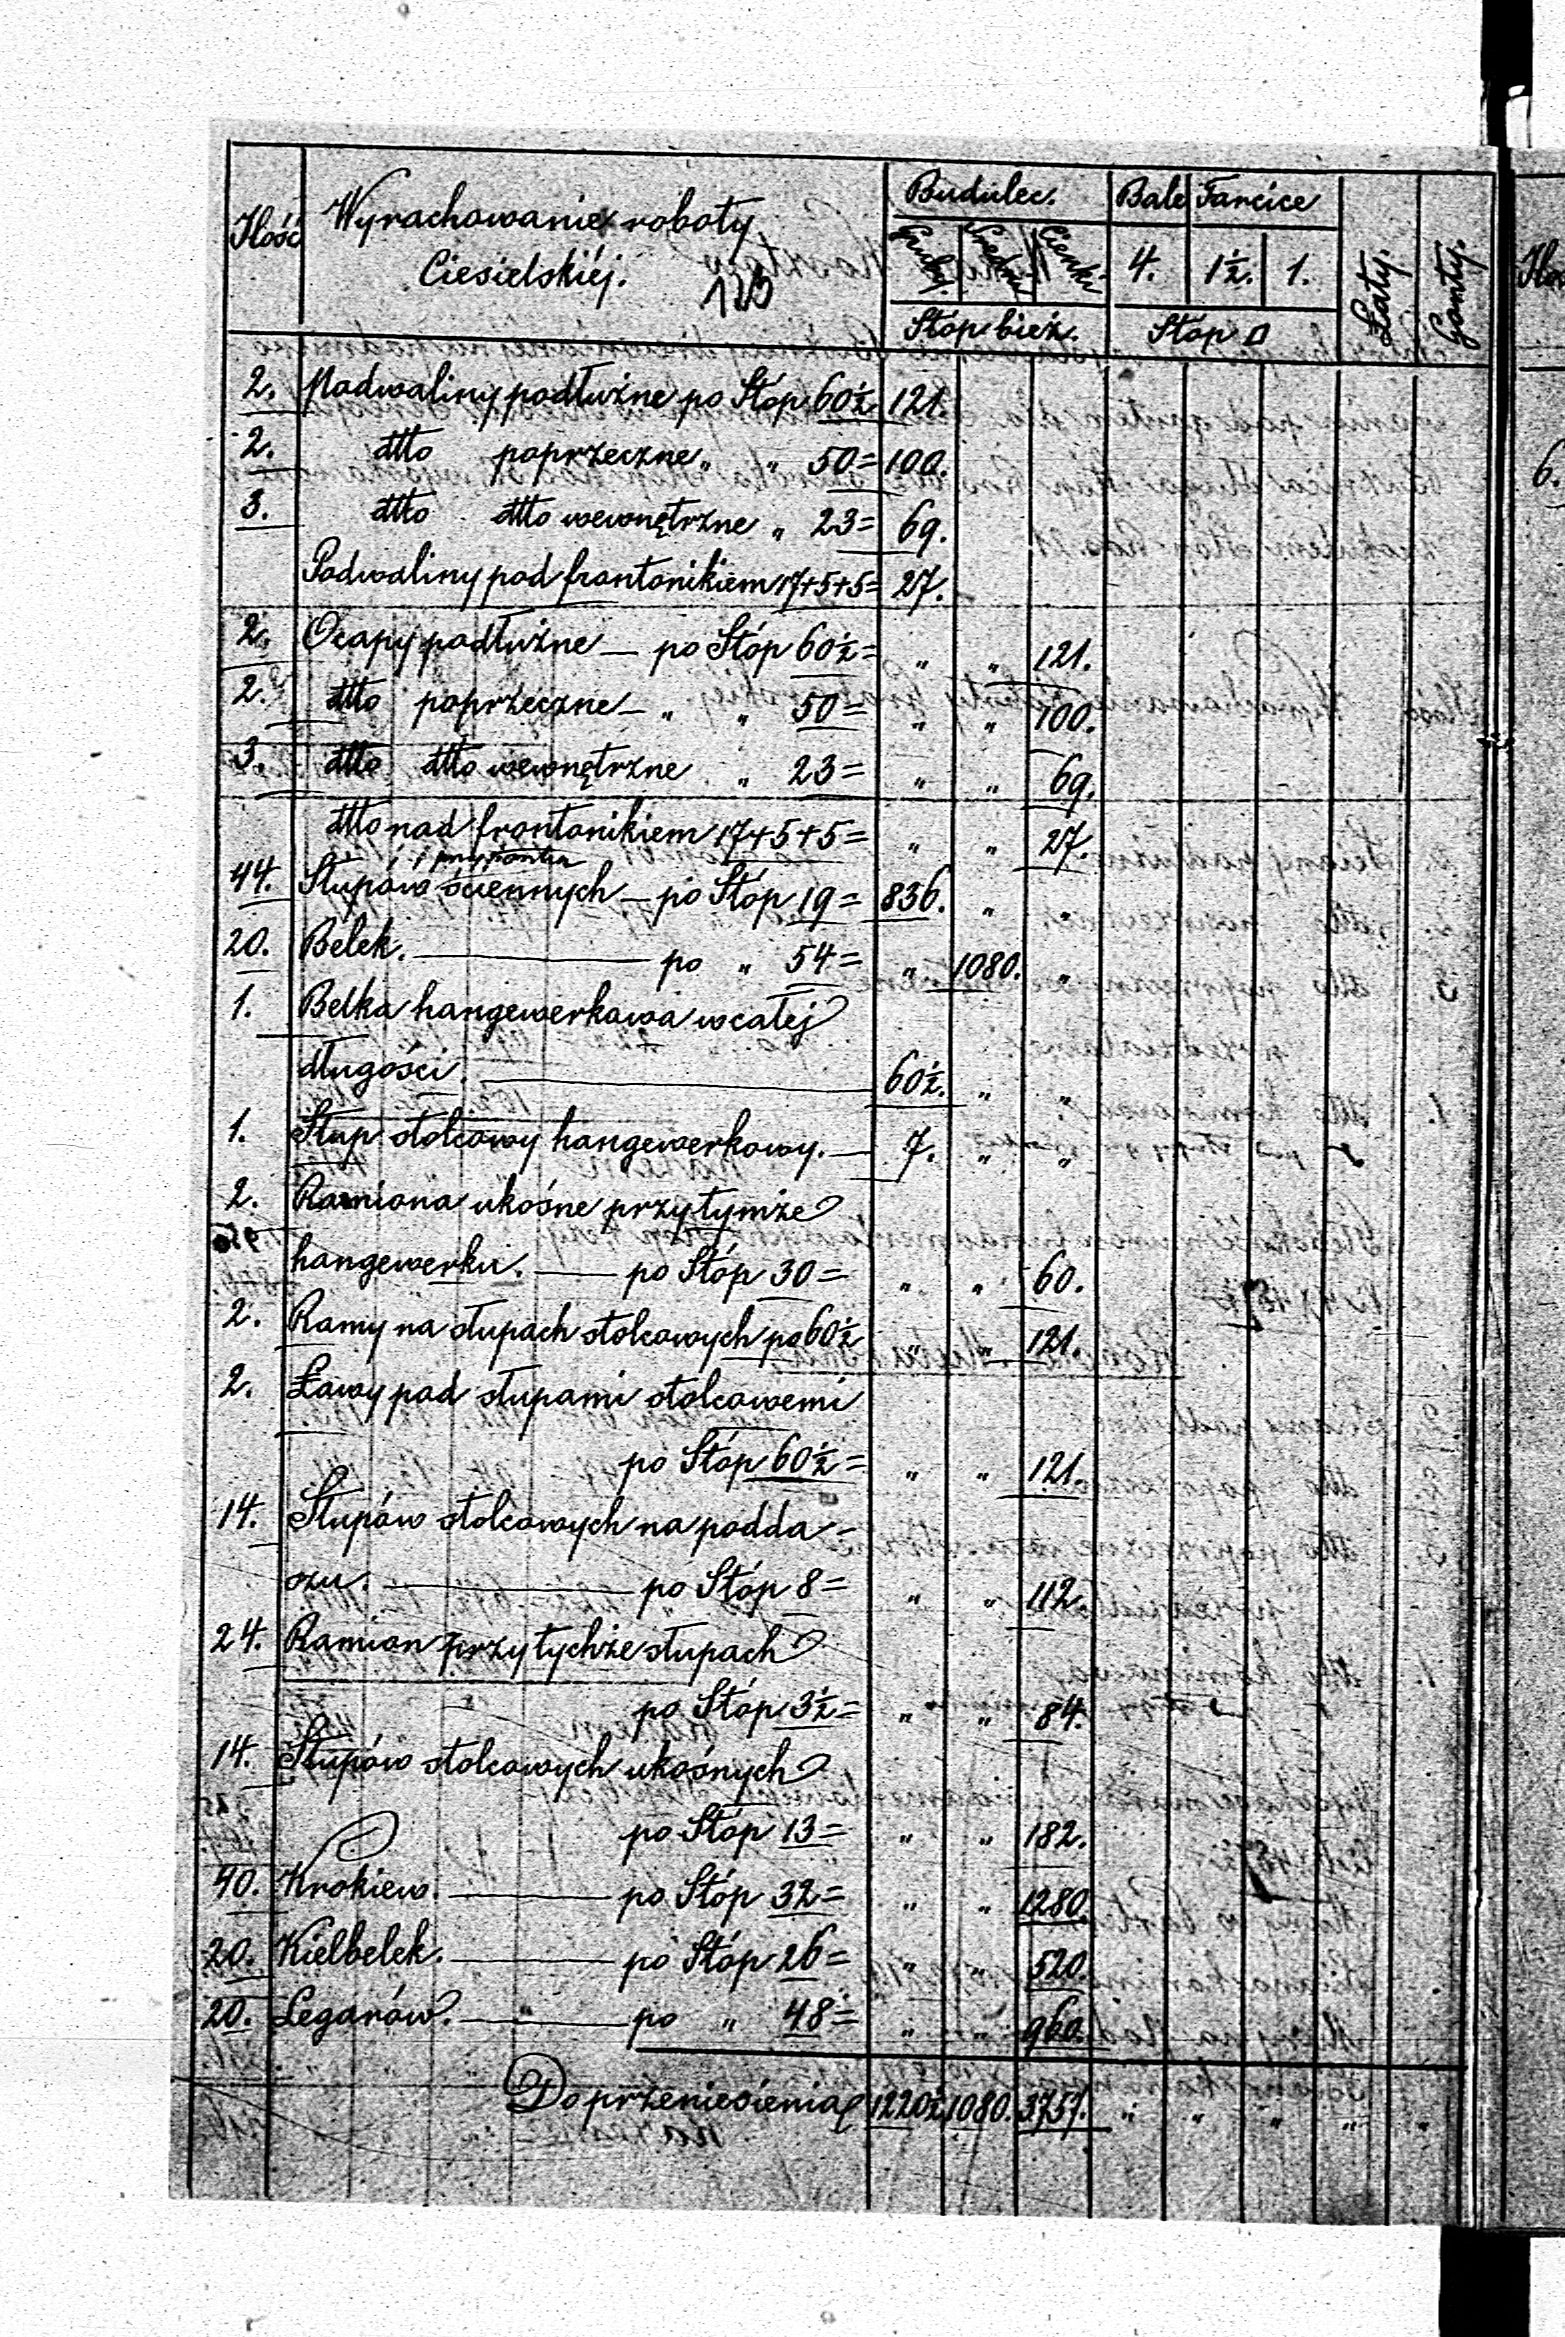 Ilość Wyrachowanie roboty Ciesielskiéj. Budulec. Bale Tarcice Łaty. Gonty.
123
Gruby. Średni Cienki 4. 1½. 1.
Stóp bież. Stóp □
2. Nadwaliny podłużne po Stóp 60½ 121.
2. dtto poprzeczne „ „ 50= 100.
3. dtto dtto wewnętrzne „ 23= 69.
Podwaliny pod frontonikiem 17+5+5= 27.
2. Ocapy podłużne — po Stóp 60½= „ „ 121.
2. dtto poprzeczne — „ „ 50= „ „ 100.
3. dtto dtto wewnętrzne „ 23= „ „ 69.
dtto nad frontonikiem 17+5+5= „ „ 27.
44. Słupów ściennych — po Stóp 19= 836. „ „
20. Belek. — po „ 54= „ 1080. „
1. Belka hangewerkowa w całej
długości. — 60½. „ „
1. Słup stolcowy hangewerkowy. — 7. „ „
2. Ramiona ukośne przy tymże
hangewerku. — po Stóp 30= „ „ 60.
2. Ramy na słupach stolcowych po 60½ „ „ 121.
2. Ławy pod słupami stolcowemi
po Stóp 60½= „ „ 121.
14. Słupów stolcowych na podda-
szu. — po Stóp 8= „ „ 112.
24. Ramion przy tychże słupach
po Stóp 3½= „ „ 84.
14. Słupów stolcowych ukośnych
po Stóp 13= „ „ 182.
40. Krokiew. — po Stóp 32= „ „ 1280.
20. Kielbelek. — po Stóp 26= „ „ 520.
20. Legarów. — po „ 48= „ „ 960.
Do przeniesienia 1220½. 1080. 3757. „ „ „ „ „
6.